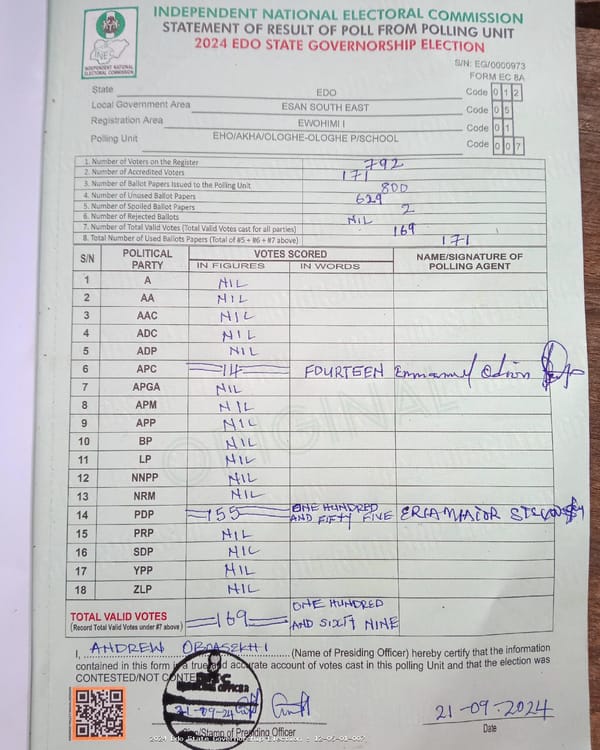 INDEPENDENT NATIONAL ELECTORAL COMMISSION
STATEMENT OF RESULT OF POLL FROM POLLING UNIT
2024 EDO STATE GOVERNORSHIP ELECTION
INDEPENDENT NATIONAL ELECTORAL COMMISSION
S/N: EG/0000973
FORM EC 8A
State EDO Code 0 1 2
Local Government Area ESAN SOUTH EAST Code 0 5
Registration Area EWOHIMI I Code 0 1
Polling Unit EHO/AKHA/OLOGHE-OLOGHE P/SCHOOL Code 0 0 7
1. Number of Voters on the Register 792
2. Number of Accredited Voters 171
3. Number of Ballot Papers Issued to the Polling Unit 800
4. Number of Unused Ballot Papers 629
5. Number of Spoiled Ballot Papers 2
6. Number of Rejected Ballots NIL
7. Number of Total Valid Votes (Total Valid Votes cast for all parties) 169
8. Total Number of Used Ballots Papers (Total of #5 + #6 + #7 above) 171
S/N POLITICAL PARTY VOTES SCORED NAME/SIGNATURE OF POLLING AGENT
IN FIGURES IN WORDS
1 A NIL
2 AA NIL
3 AAC NIL
4 ADC NIL
5 ADP NIL
6 APC 14 FOURTEEN Emmanuel
7 APGA NIL
8 APM NIL
9 APP NIL
10 BP NIL
11 LP NIL
12 NNPP NIL
13 NRM NIL
14 PDP 155 ONE HUNDRED AND FIFTY FIVE
15 PRP NIL
16 SDP NIL
17 YPP NIL
18 ZLP NIL
TOTAL VALID VOTES 169 ONE HUNDRED
(Record Total Valid Votes under #7 above) AND SIXTY NINE
ORIGINAL
I, ANDREW OBOASEKHI (Name of Presiding Officer) hereby certify that the information
contained in this form is a true and accurate account of votes cast in this polling Unit and that the election was
CONTESTED/NOT CONTE
21-09-24
21-09-2024
Sign/Stamp of Presiding Officer Date
2024 Edo State Governorship Election - 12-05-01-007